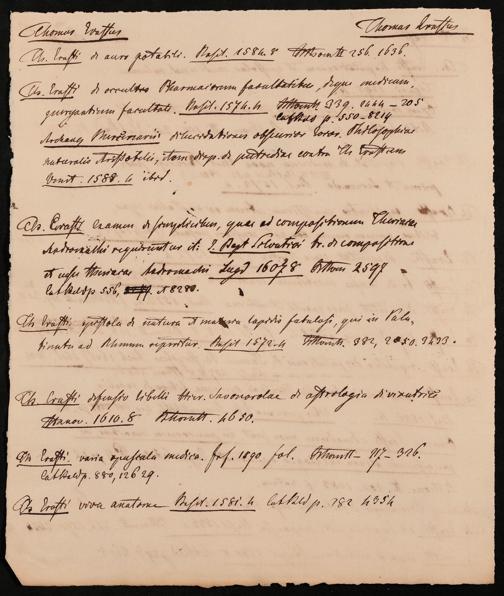 Thomas Erastus Thomas Erastus
Th. Erasti de auro potabili. Basil. 1584. 8 256. 1636.
Th. Erasti de occultis Pharmacorum facultatibus, deque medicam.
purgantium facultate. Basil. 1574. 4 339. 2444 — 205
p. 550. 8214
Archang. Mercenarii dilucidationes obscurior. locor. Philosophiae
naturalis Aristotelis, item disp. de putredine contra Th. Erastum
Venet. 1588. 4 ibid.
Th. Erasti examen de simplicibus, quae ad compositionem Theriacae
Andromachi requiruntur it: J. Bapt. Silvatici tr. de compositione
et usu theriacae Andromachi Lugd 1607. 8 2597
p 556, 8280.
Th. Erasti epistola de natura et materia lapidis fabulosi, qui in Pala-
tinatu ad Rhenum reperitur. Basil 1572. 4 382, 2050. 3233.
Th. Erasti defensio libelli Hier. Savonarolae de astrologia divinatrice
Hanov. 1610. 8 4650.
Th. Erasti varia opuscula medica. fol. 326.
p. 880, 12629.
Th. Erasti viva anatome Basil. 1581. 4 p. 282 4354